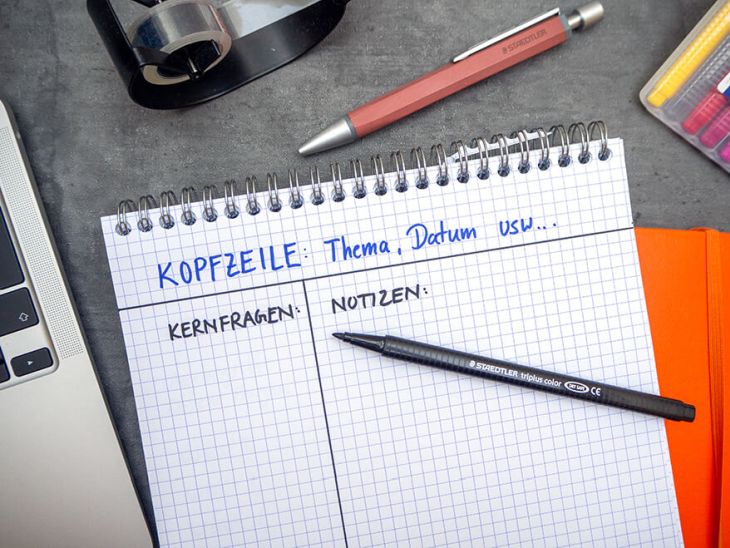 STAEDTLER
KOPFZEILE: Thema, Datum usw...
KERNFRAGEN:
NOTIZEN:
STAEDTLER triplus color DRY SAFE CE